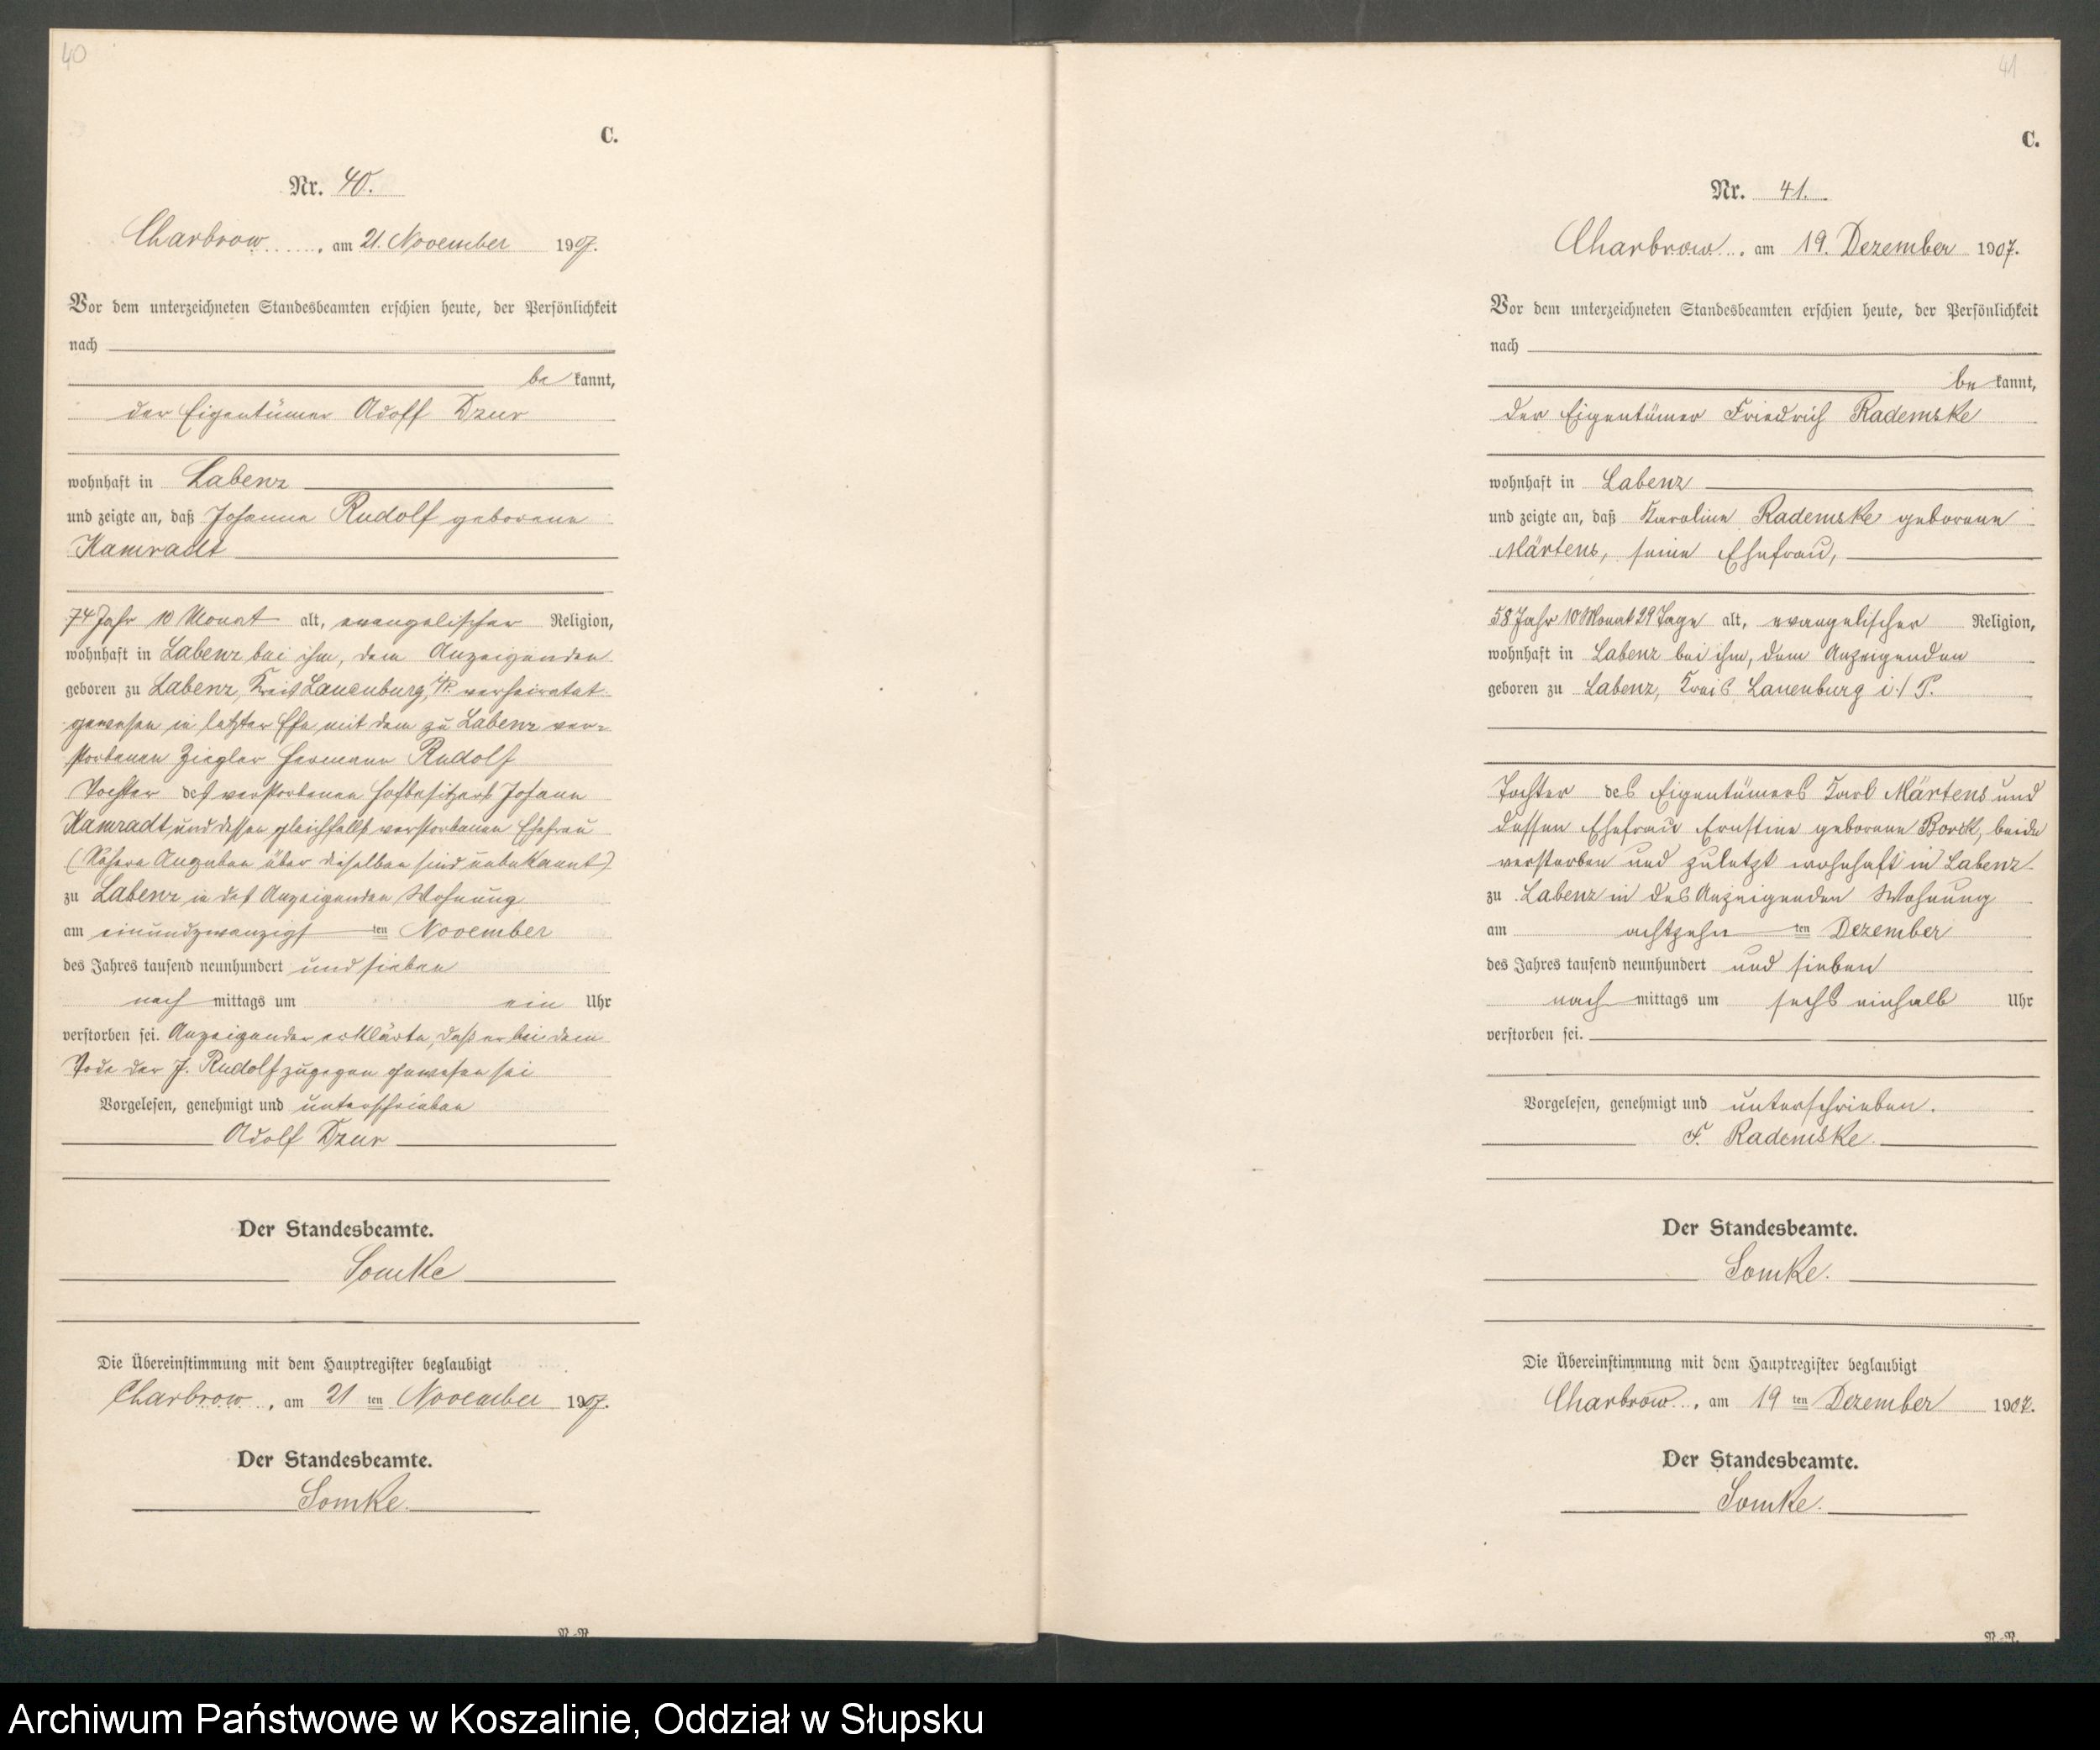 40
C.
Nr. 40.
Charbrow, am 21. November 1907.
Vor dem unterzeichneten Standesbeamten erschien heute, der Persönlichkeit
nach
be kannt,
der Eigentümer Adolf Dzur
wohnhaft in Labenz
und zeigte an, daß Johanna Rudolf geborene
Kamradt
74 Jahr 10 Monat alt, evangelischer Religion,
wohnhaft in Labenz bei ihm, dem Anzeigenden
geboren zu Labenz, Kreis Lauenburg, i/P. verheiratet
gewesen in letzter Ehe mit dem zu Labenz ver-
storbenen Ziegler Hermann Rudolf
Tochter des verstorbenen Hofbesitzers Johann
Kamradt und dessen gleichfalls verstorbenen Ehefrau
(Nähere Angaben über dieselben sind unbekannt)
zu Labenz in des Anzeigenden Wohnung
am einundzwanzigs ten November
des Jahres tausend neunhundert und sieben
nach mittags um ein Uhr
verstorben sei. Anzeigender erklärte, daß er bei dem
Tode der J. Rudolf zugegen gewesen sei
Vorgelesen, genehmigt und unterschrieben
Adolf Dzur
Der Standesbeamte.
Somke
Die Übereinstimmung mit dem Hauptregister beglaubigt
Charbrow, am 21 ten November 1907.
Der Standesbeamte.
Somke.
41
C.
Nr. 41.
Charbrow, am 19. Dezember 1907.
Vor dem unterzeichneten Standesbeamten erschien heute, der Persönlichkeit
nach
be kannt,
der Eigentümer Friedrich Rademske
wohnhaft in Labenz
und zeigte an, daß Karoline Rademske geborene
Märtens, seine Ehefrau,
58 Jahr 10 Monat 29 Tage alt, evangelischer Religion,
wohnhaft in Labenz bei ihm, dem Anzeigenden
geboren zu Labenz, Kreis Lauenburg i./P.
Tochter des Eigentümers Karl Märtens und
dessen Ehefrau Ernstine geborene Borck, beide
verstorben und zuletzt wohnhaft in Labenz
zu Labenz in des Anzeigenden Wohnung
am achtzehn ten Dezember
des Jahres tausend neunhundert und sieben
nach mittags um sechs einhalb Uhr
verstorben sei.
Vorgelesen, genehmigt und unterschrieben.
F. Rademske.
Der Standesbeamte.
Somke.
Die Übereinstimmung mit dem Hauptregister beglaubigt
Charbrow, am 19 ten Dezember 1907.
Der Standesbeamte.
Somke.
Archiwum Państwowe w Koszalinie, Oddział w Słupsku